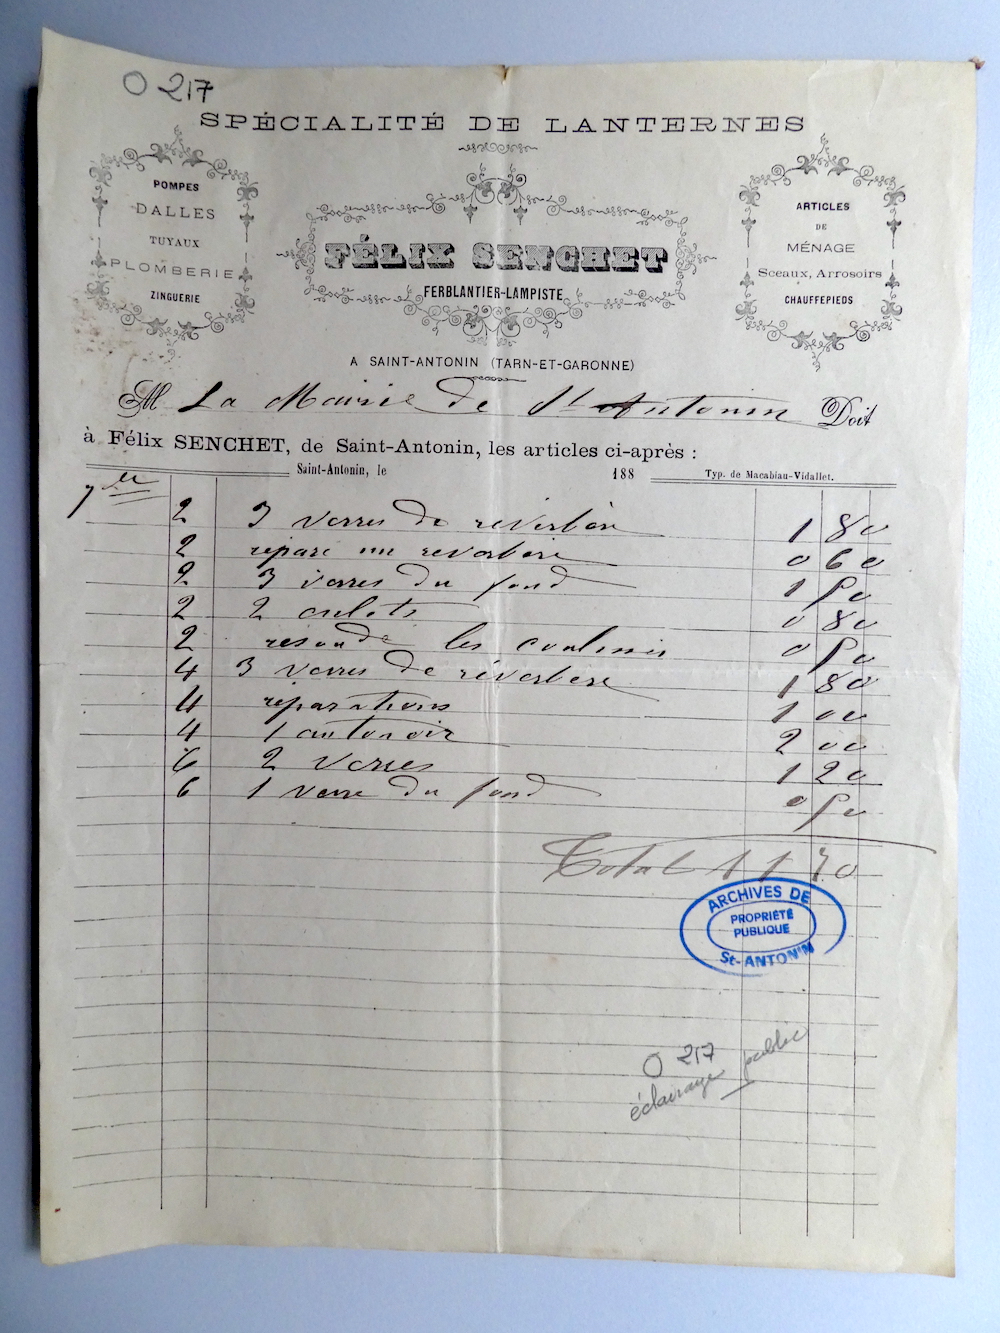 O 217
SPÉCIALITÉ DE LANTERNES
POMPES
DALLES
TUYAUX
PLOMBERIE
ZINGUERIE
FÉLIX SENCHET
FERBLANTIER-LAMPISTE
ARTICLES
DE
MÉNAGE
Sceaux, Arrosoirs
CHAUFFEPIEDS
A SAINT-ANTONIN (TARN-ET-GARONNE)
M La Mairie de St Antonin Doit
à Félix SENCHET, de Saint-Antonin, les articles ci-après :
Saint-Antonin, le 188
Typ. de Macabiau-Vidallet.
2 3 verres de réverbère 1 80
2 réparé un reverbère 0 60
2 3 verres du fond 1 50
2 2 culots 0 80
2 les 0 50
4 3 verres de réverbere 1 80
4 réparations 1 00
4 1 antonoir 2 00
6 2 verres 1 20
6 1 verre du fond 0 50
Total 11 70
ARCHIVES DE
PROPRIÉTÉ
PUBLIQUE
St-ANTONIN
O 217
éclairage public